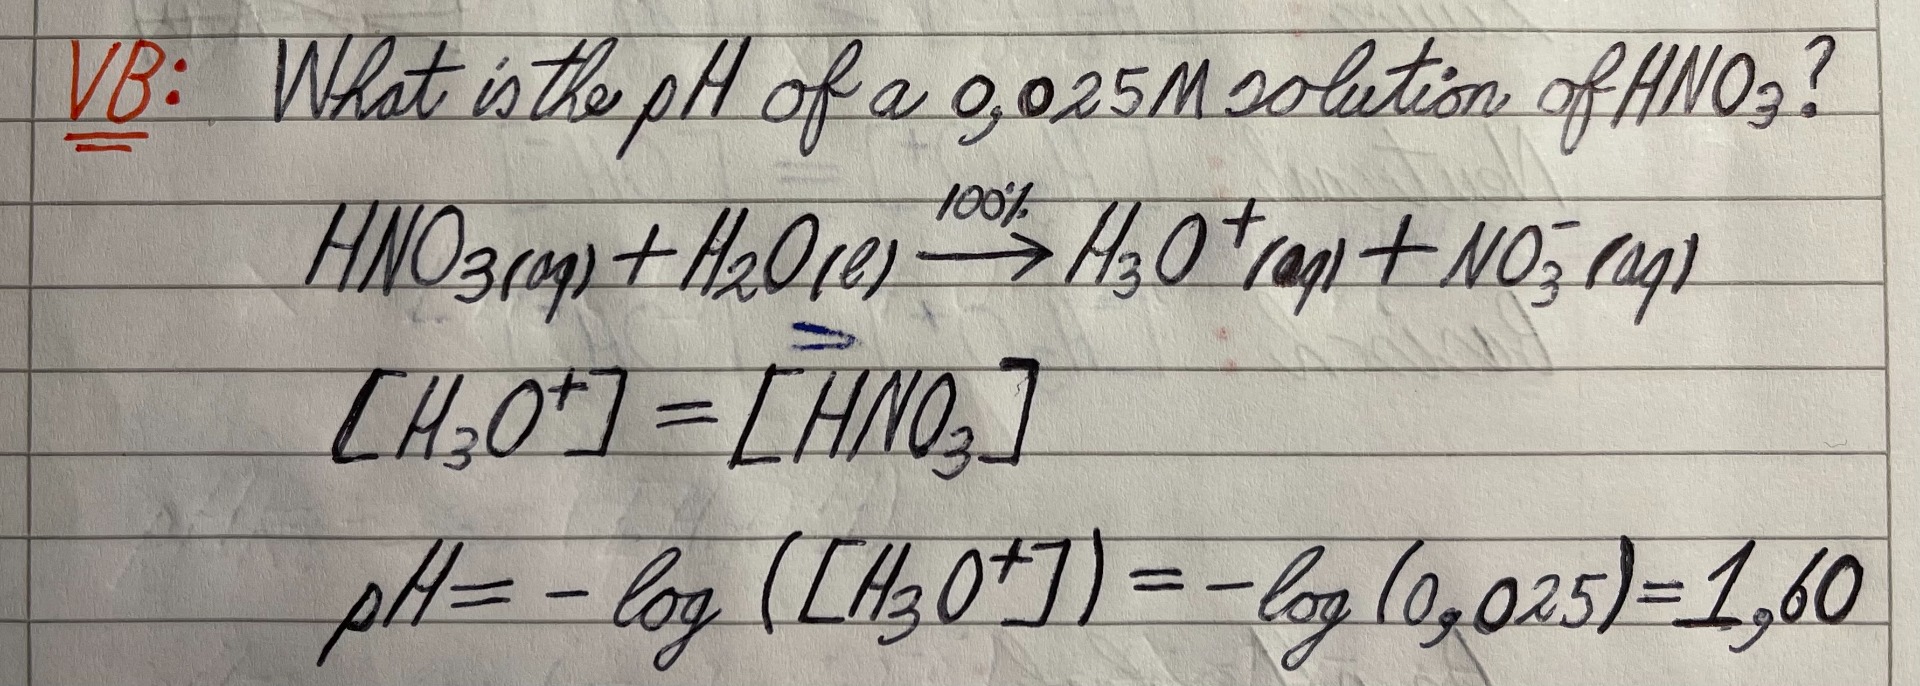 VB: What is the pH of a 0,025M solution of HNO₃?
HNO₃(aq) + H₂O(l) —100%→ H₃O⁺(aq) + NO₃⁻(aq)
[H₃O⁺] = [HNO₃]
pH = - log ([H₃O⁺]) = - log (0,025) = 1,60